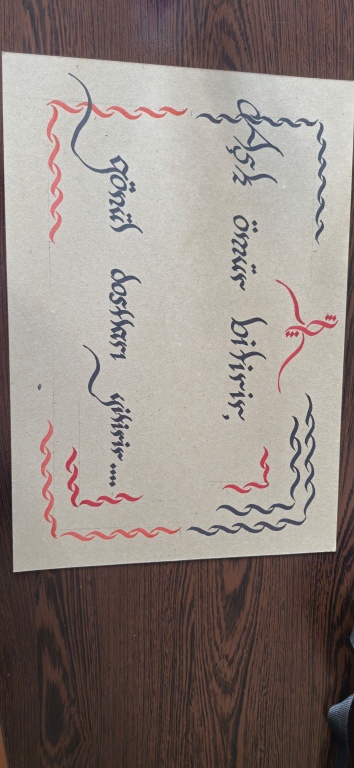 Aşk ömür bitirir,
gönül dostları yitirir....